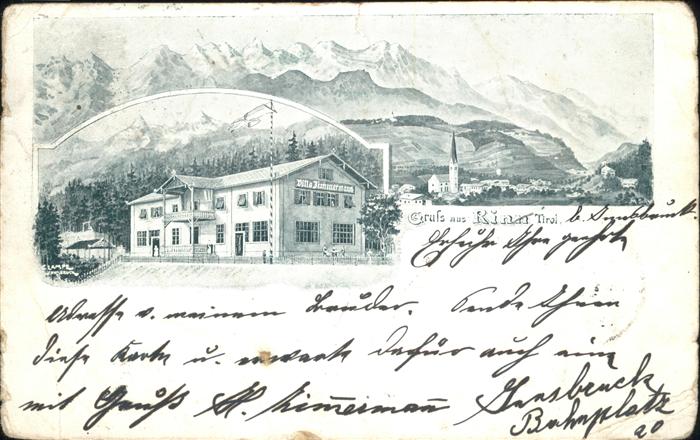 Villa Zimmermann
Gruß aus Rinn Tirol. b. Innsbruck.
Erfuhr Ihre geehrte
Adresse v. meinem Bruder. Sende Ihnen
diese Karte u. erwarte dafür auch eine
mit Gruß M. Zimmermann Innsbruck
Bahnplatz